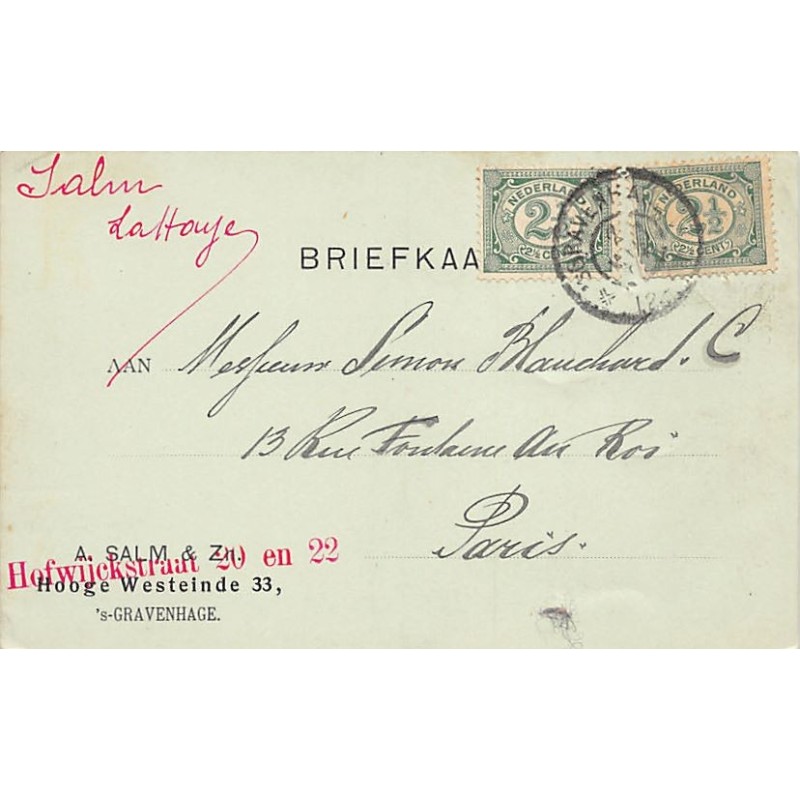 Salm
La Haye
BRIEFKAA
NEDERLAND
2½
2½ CENT
'SGRAVENHA
AAN Messieurs Simon Blanchard. C
13 Rue Fontaine Au Roi
Paris.
A. SALM & Zn.
Hofwijckstraat 20 en 22
Hooge Westeinde 33,
's-GRAVENHAGE.